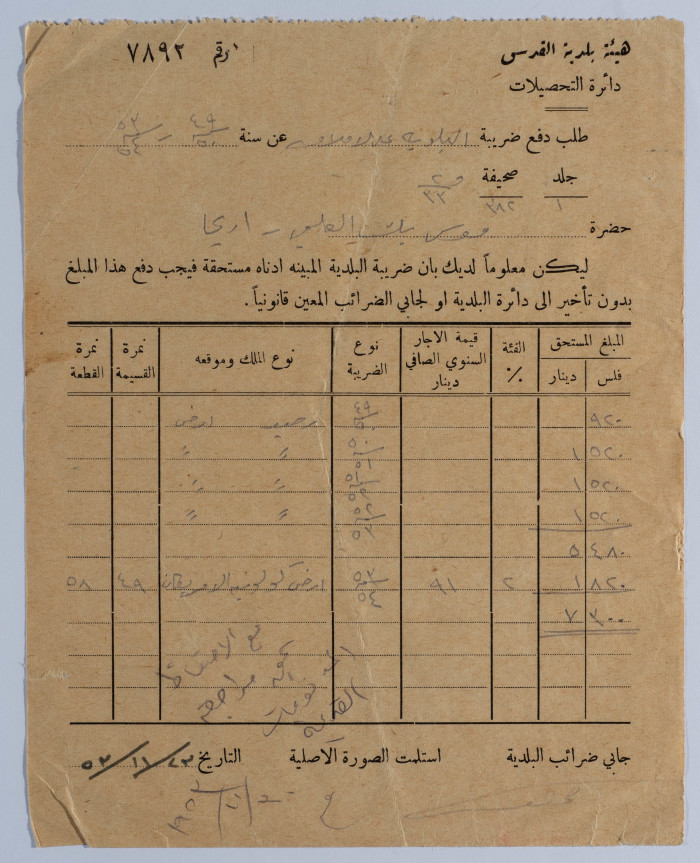 هيئة بلدية القدس
رقم ٧٨٩٢
دائرة التحصيلات
طلب دفع ضريبة البلدية عن سنة ٤٩/٥٠ – ٥٣/٥٤
جلد صحيفة
١ ٣٨٢ ٢/٣٣
حضرة العلمي - اريحا
ليكن معلوماً لديك بان ضريبة البلدية المبينه ادناه مستحقة فيجب دفع هذا المبلغ
بدون تأخير الى دائرة البلدية او لجابي الضرائب المعين قانونياً.
المبلغ المستحق
فلس دينار
الفئة %
قيمة الاجار السنوي الصافي دينار
نوع الضريبة
نوع الملك وموقعه
نمرة القسيمة
نمرة القطعة
٩٢٠ ٤٩/٥٠ ارض
٥٢٠ ١ ٥٠/٥١ " "
٥٢٠ ١ " "
٥٢٠ ١ " "
٤٨٠ ٥
٨٢٠ ١ ٢ ٩١ ٥٣/٥٤ ارض كولونية الامريكان ٤٩ ٥٨
٣٠٠ ٧
مع الاحتفاظ
بحق مراجعة
جابي ضرائب البلدية استلمت الصورة الاصلية التاريخ ٢٣/١١/٥٣